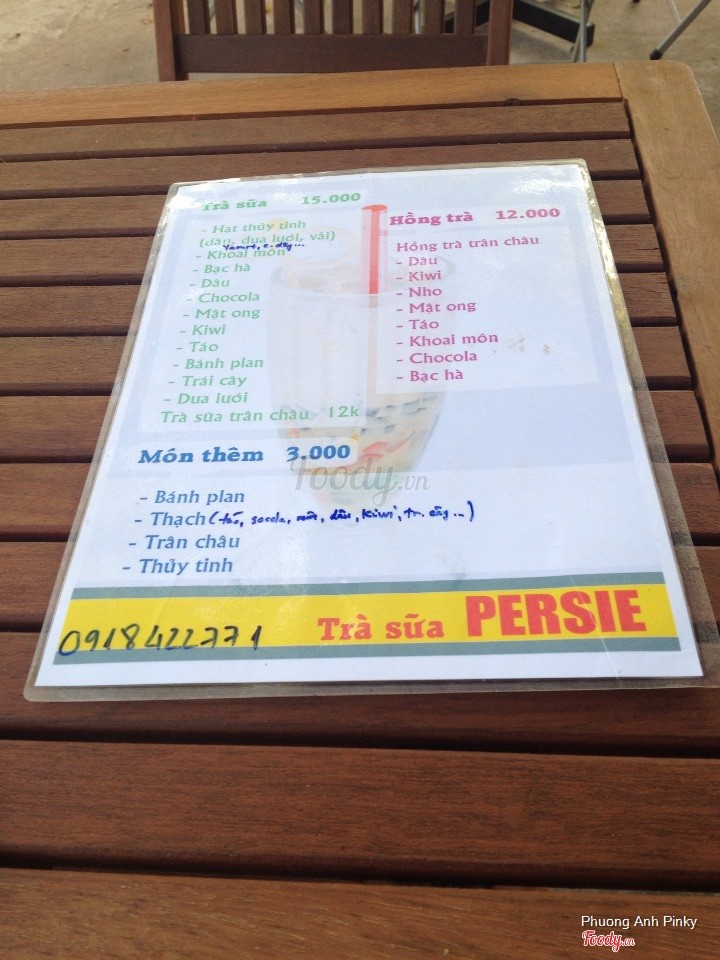 Trà sữa 15.000
- Hạt thủy tinh
(dâu, dưa lưới, vải)
- Khoai môn
- Bạc hà
- Dâu
- Chocola
- Mật ong
- Kiwi
- Táo
- Bánh plan
- Trái cây
- Dưa lưới
Trà sữa trân châu 12k
Hồng trà 12.000
Hồng trà trân châu
- Dâu
- Kiwi
- Nho
- Mật ong
- Táo
- Khoai môn
- Chocola
- Bạc hà
Món thêm 3.000
Foody.vn
- Bánh plan
- Thạch (táo, socola, dâu, kiwi, ...)
- Trân châu
- Thủy tinh
0918422771 Trà sữa PERSIE
Phuong Anh Pinky
Foody.vn